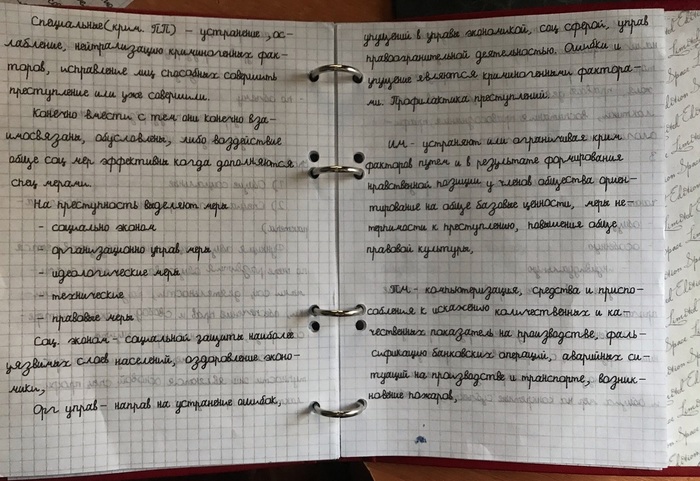 Специальные(крим. ПП) – устранение, ос-
лабление, нейтрализацию криминогенных фак-
торов, исправление лиц способных совершить
преступление или уже совершили.
Конечно вместе с тем они конечно вза-
имосвязаны, обусловлены, либо воздействие
обще соц мер эффективны когда дополняются
спец мерами.
На преступность выделяют меры
- социально эконом
- организационно управ меры
- идеологические меры
- технические
- правовые меры
Соц. эконом - социальной защиты наиболее
уязвимых слоев населений, оздоровление эконо-
мики,
Орг управ - направ на устранение ошибок,
упущений в управы экономикой, соц сферой, управ
правоогранительной деятельностью. Ошибки и
упущение являются криминогенными фактора-
ми. Профилактика преступлений.
ИМ - устраняют или ограничивая крим
факторов путем и в результате формирования
нравственной позиции у членов общества ориен-
тирование на обще базовые ценности, меры не-
терпимости к преступлению, повышения обще
правовой культуры,
ТМ - компьютеризация, средства и приспо-
собления к искажению количественных и ка-
чественных показатель на производстве, фаль-
сификацию банковских операций, аварийных си-
туаций на производстве и транспорте, возник-
новение пожаров,